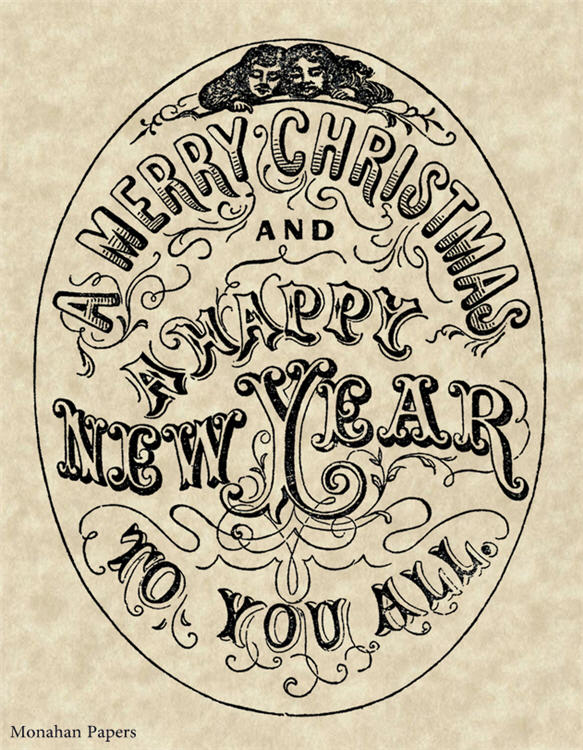 A MERRY CHRISTMAS
AND
A HAPPY
NEW YEAR
TO YOU ALL.
Monahan Papers